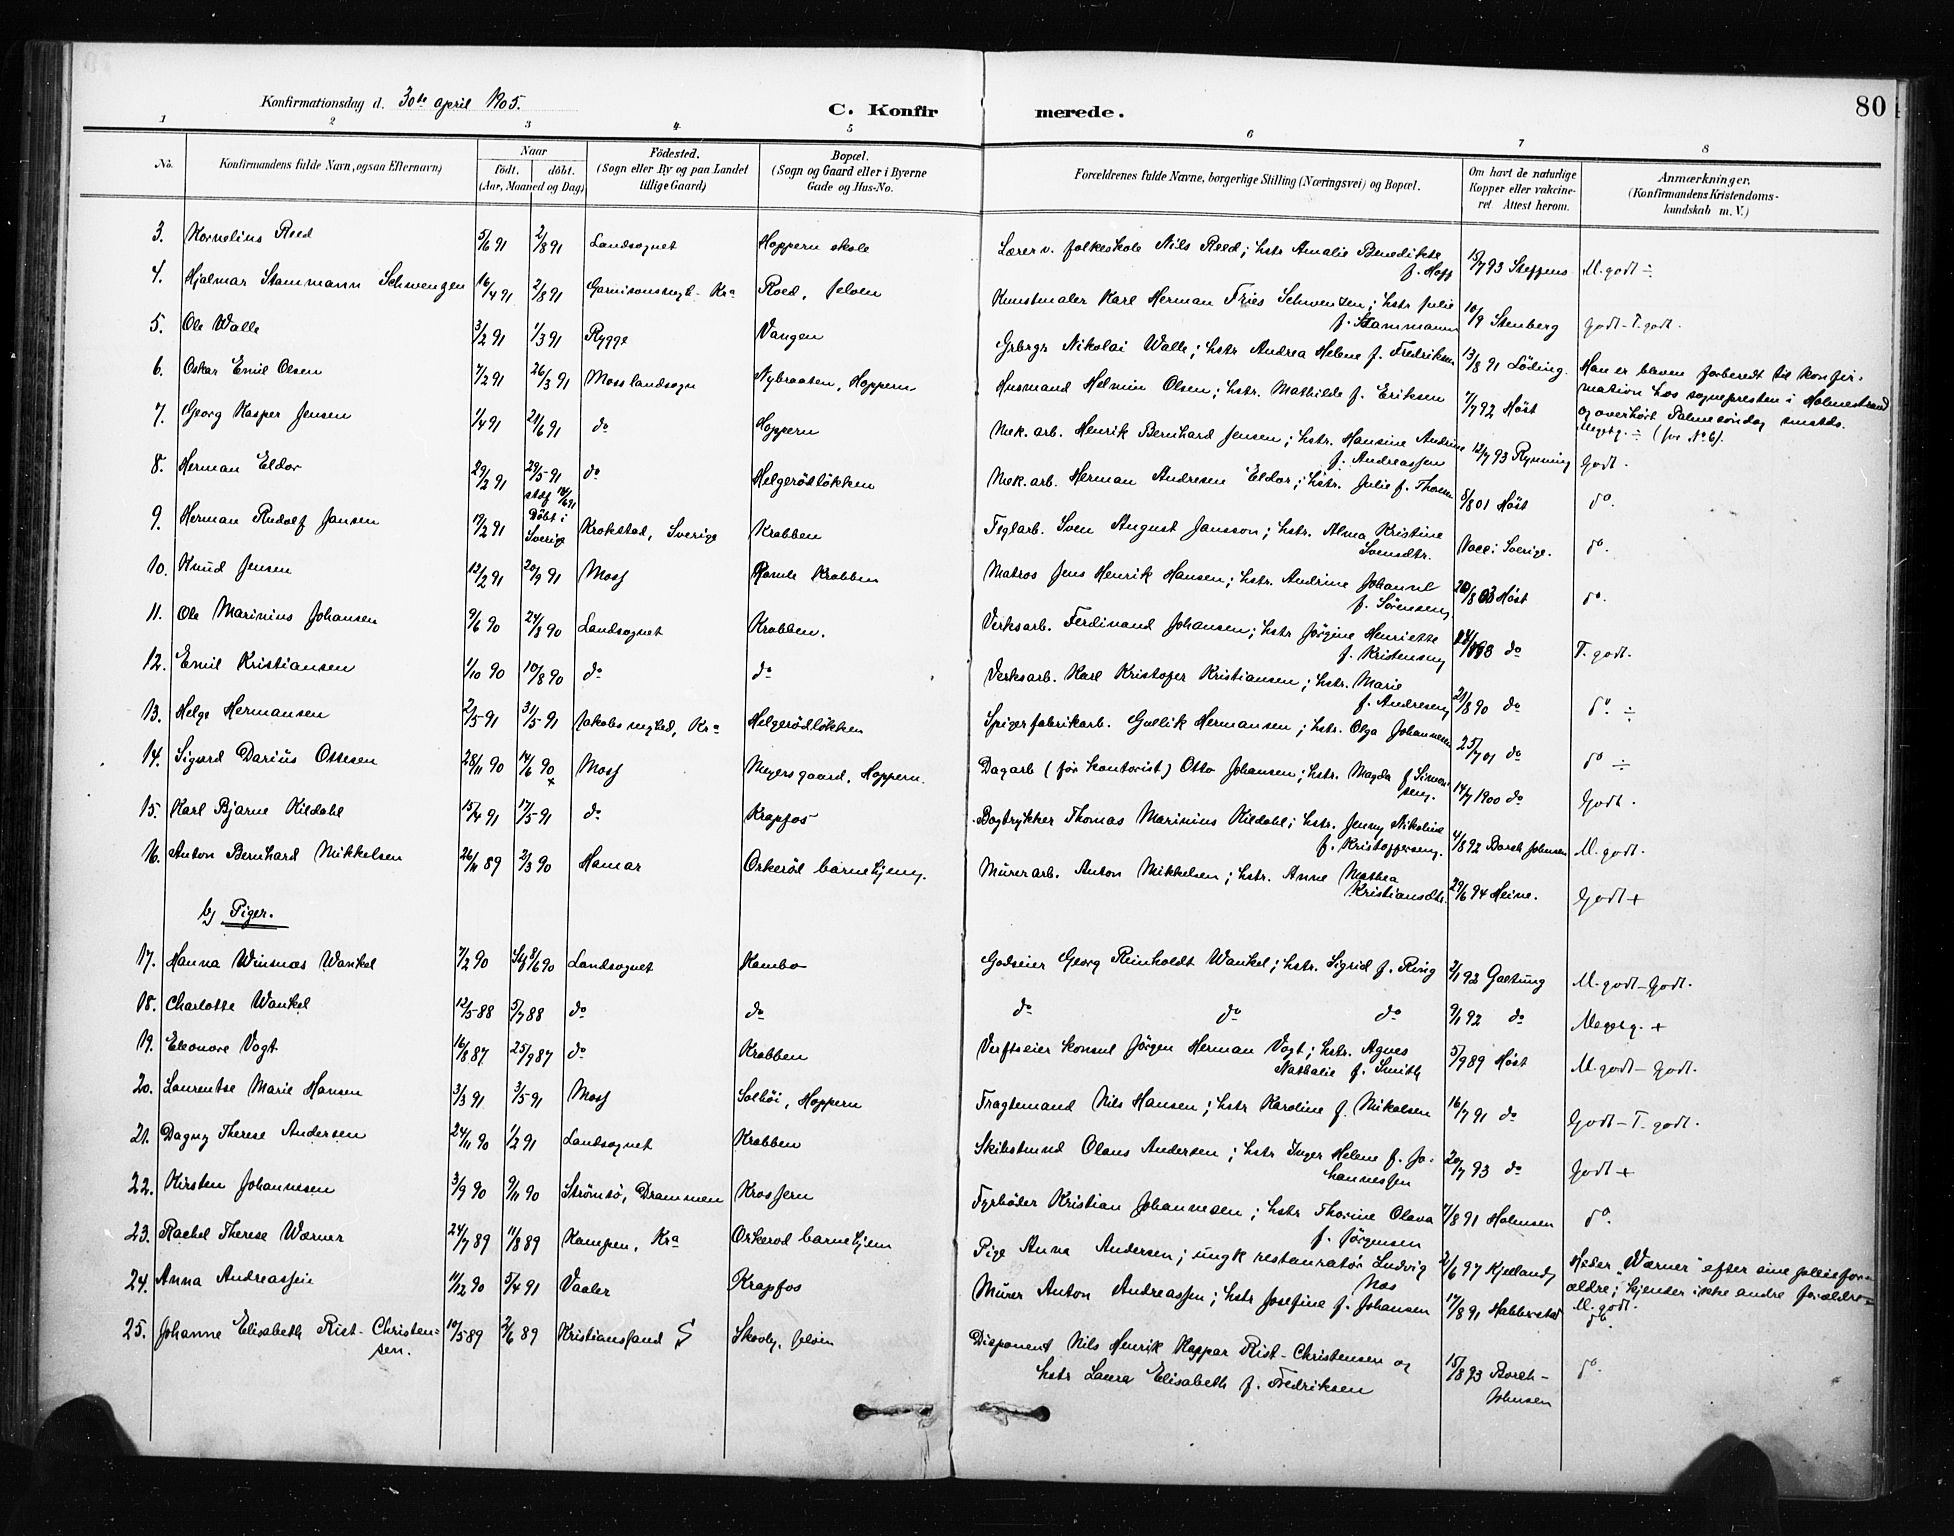 Konfirmationsdag d. 30te april 1905.
C. Konfirmerede.
80
1 2 3 4 5 6 7 8
No.
Konfirmandens fulde Navn, ogsaa Efternavn)
Naar
födt. döbt.
(Aar, Maaned og Dag)
Födested.
(Sogn eller By og paa Landet
tillige Gaard)
Bopæl.
(Sogn og Gaard eller i Byerne
Gade og Hus-No.
Forældrenes fulde Navne, borgerlige Stilling (Næringsvei) og Bopæl.
Om havt de naturlige
Kopper eller vakcine-
ret. Attest herom.
Anmærkninger.
(Konfirmandens Kristendoms-
kundskab m. V.)
3. Kornelius Roed 5/6 91 2/8 91 Landsognet Hoppern skole Lærer v. folkeskole Nils Roed; hstr Amalie Benedikte
f. Hopp 13/7 93 Steffens M. godt ÷
4. Hjalmar Stammann Schwenzen 16/4 91 2/8 91 Garnisonsmgh. Kra Roed, Jeløen Kunstmaler Karl Herman Fries Schwenzen; hstr Julie
f. Stammann 10/9 Stenberg Godt - T. godt.
5. Ole Walle 3/2 91 1/3 91 Rygge Vangen Grbrgr Nikolai Walle; hstr Andrea Helene f. Fredriksen 13/8 91 Löding.
6. Oskar Emil Olsen 7/2 91 26/3 91 Moss landsogn Nybraaten, Hoppern Husmand Helmin Olsen; hstr. Mathilde f. Eriksen 7/7 92 Höst
Han er bleven forberedt til konfir-
mation hos sognepresten i Holmestrand
og overhört Palmesöndag smstds.
Megetg. ÷ (for No 6).
7. Georg Kasper Jensen 1/4 91 21/6 91 do Hoppern Mek. arb. Henrik Bernhard Jensen; hstr. Hansine Andrine
f. Andreassen 12/7 93 Rynning Godt.
8. Herman Eldor 29/2 91 29/5 91 do Helgerödløkken Mek. arb. Herman Andresen Eldor; hstr. Julie f. Thoresen 8/8 01 Höst do.
9. Herman Rudolf Jansen 19/2 91 Döbt i
Sverige Krokstad, Sverige Krabben Teglarb. Sven August Jansson; hstr. Alma Kristine
Svensdtr. Vacc. i Sverige. do.
10. Knud Jensen 12/2 91 20/9 91 Moss Ramle Krabben Matros Jens Henrik Hansen; hstr. Andrine Johanne
f. Sörensen Höst do.
11. Ole Marinius Johansen 9/6 90 24/8 90 Landsognet Krabben. Verksarb. Ferdinand Johansen; hstr Jörgine Henriette
f. Kristensen do T. godt.
12. Emil Kristiansen 1/10 90 10/8 90 do do Verksarb. Karl Kristofer Kristiansen; hstr. Marie
f. Andresen 21/8 90 do do. ÷
13. Helge Hermansen 2/5 91 31/5 91 Jakobs mghed, Kra Helgerödløkken Spigerfabrikarb. Gullik Hermansen; hstr. Olga Johannesen 25/7 01 do do ÷
14. Sigurd Darius Ottesen 28/11 90 14/6 90 + Moss Meyers gaard, Hoppern. Dagarb (för kontorist) Otto Johansen; hstr. Magda f. Simon-
sen. 14/7 1900 do Godt.
15. Karl Bjarne Kildahl 15/4 91 17/5 91 do Krapfos Bogtrykker Thomas Marinius Kildahl; hstr. Jenny Nikoline
f. Kristoffersen. 4/8 92 Borch Johnsen M. godt.
16. Anton Bernhard Mikkelsen 26/11 89 2/3 90 Hamar Orkeröd barnehjem. Murerarb. Anton Mikkelsen; hstr. Anne Mathea
Kristiansdtr. 29/6 94 Heine. Godt +
b) Piger.
17. Hanna Winsnæs Wankel 7/2 90 8/6 90 Landsognet Kambo Godseier Georg Reinholdt Wankel; hstr. Sigrid f. Ring 2/1 92 Gretung M. godt - Godt.
18. Charlotte Wankel 12/5 88 5/7 88 do do do do do 9/1 92 do Megetg. +
19. Eleonore Vogt 16/8 87 25/9 87 do Krabben Verftseier konsul Jörgen Herman Vogt; hstr. Agnes
Nathalie f. Smith 5/9 89 Höst M. godt - Godt.
20. Laurentse Marie Hansen 3/3 91 3/5 91 Moss Solhöi, Hoppern Fragtemand Nils Hansen; hstr Karoline f. Mikalsen 16/7 91 do Godt - T. godt.
21. Dagny Therese Andersen 24/11 90 1/2 91 Landsognet Krabben Skibstmnd Olaus Andersen; hstr Inger Helene f. Jo-
hannessen 20/7 93 do Godt +
22. Kirsten Johannesen 3/9 90 9/11 90 Strömsö, Drammen Krosfern Fyrböder Kristian Johannesen; hstr Thorine Olava
f. Jörgensen 7/8 91 Holmsen do.
23. Rachel Therese Wærner 24/7 89 11/8 89 Kampen, Kra Orkeröd barnehjem Pige Anna Andersen; ungk restauratör Ludvig
Næs 2/6 97 Kjelland Heder "Wærner" efter sine pleiefor-
ældre; kjender ikke andre forældre.
M. godt.
24. Anna Andreassen 11/12 90 5/4 91 Vaaler Krapfos Murer Anton Andreassen; hstr Josefine f. Johansen 17/8 91 Hebberstad do.
25. Johanne Elisabeth Rist-Christen-
sen. 10/5 89 2/6 89 Kristianssand S Skovly, Jeløen Disponent Nils Henrik Kaspar Rist-Christensen og
hstr Laura Elisabeth f. Fredriksen 15/8 93 Borch-
Johnsen do.